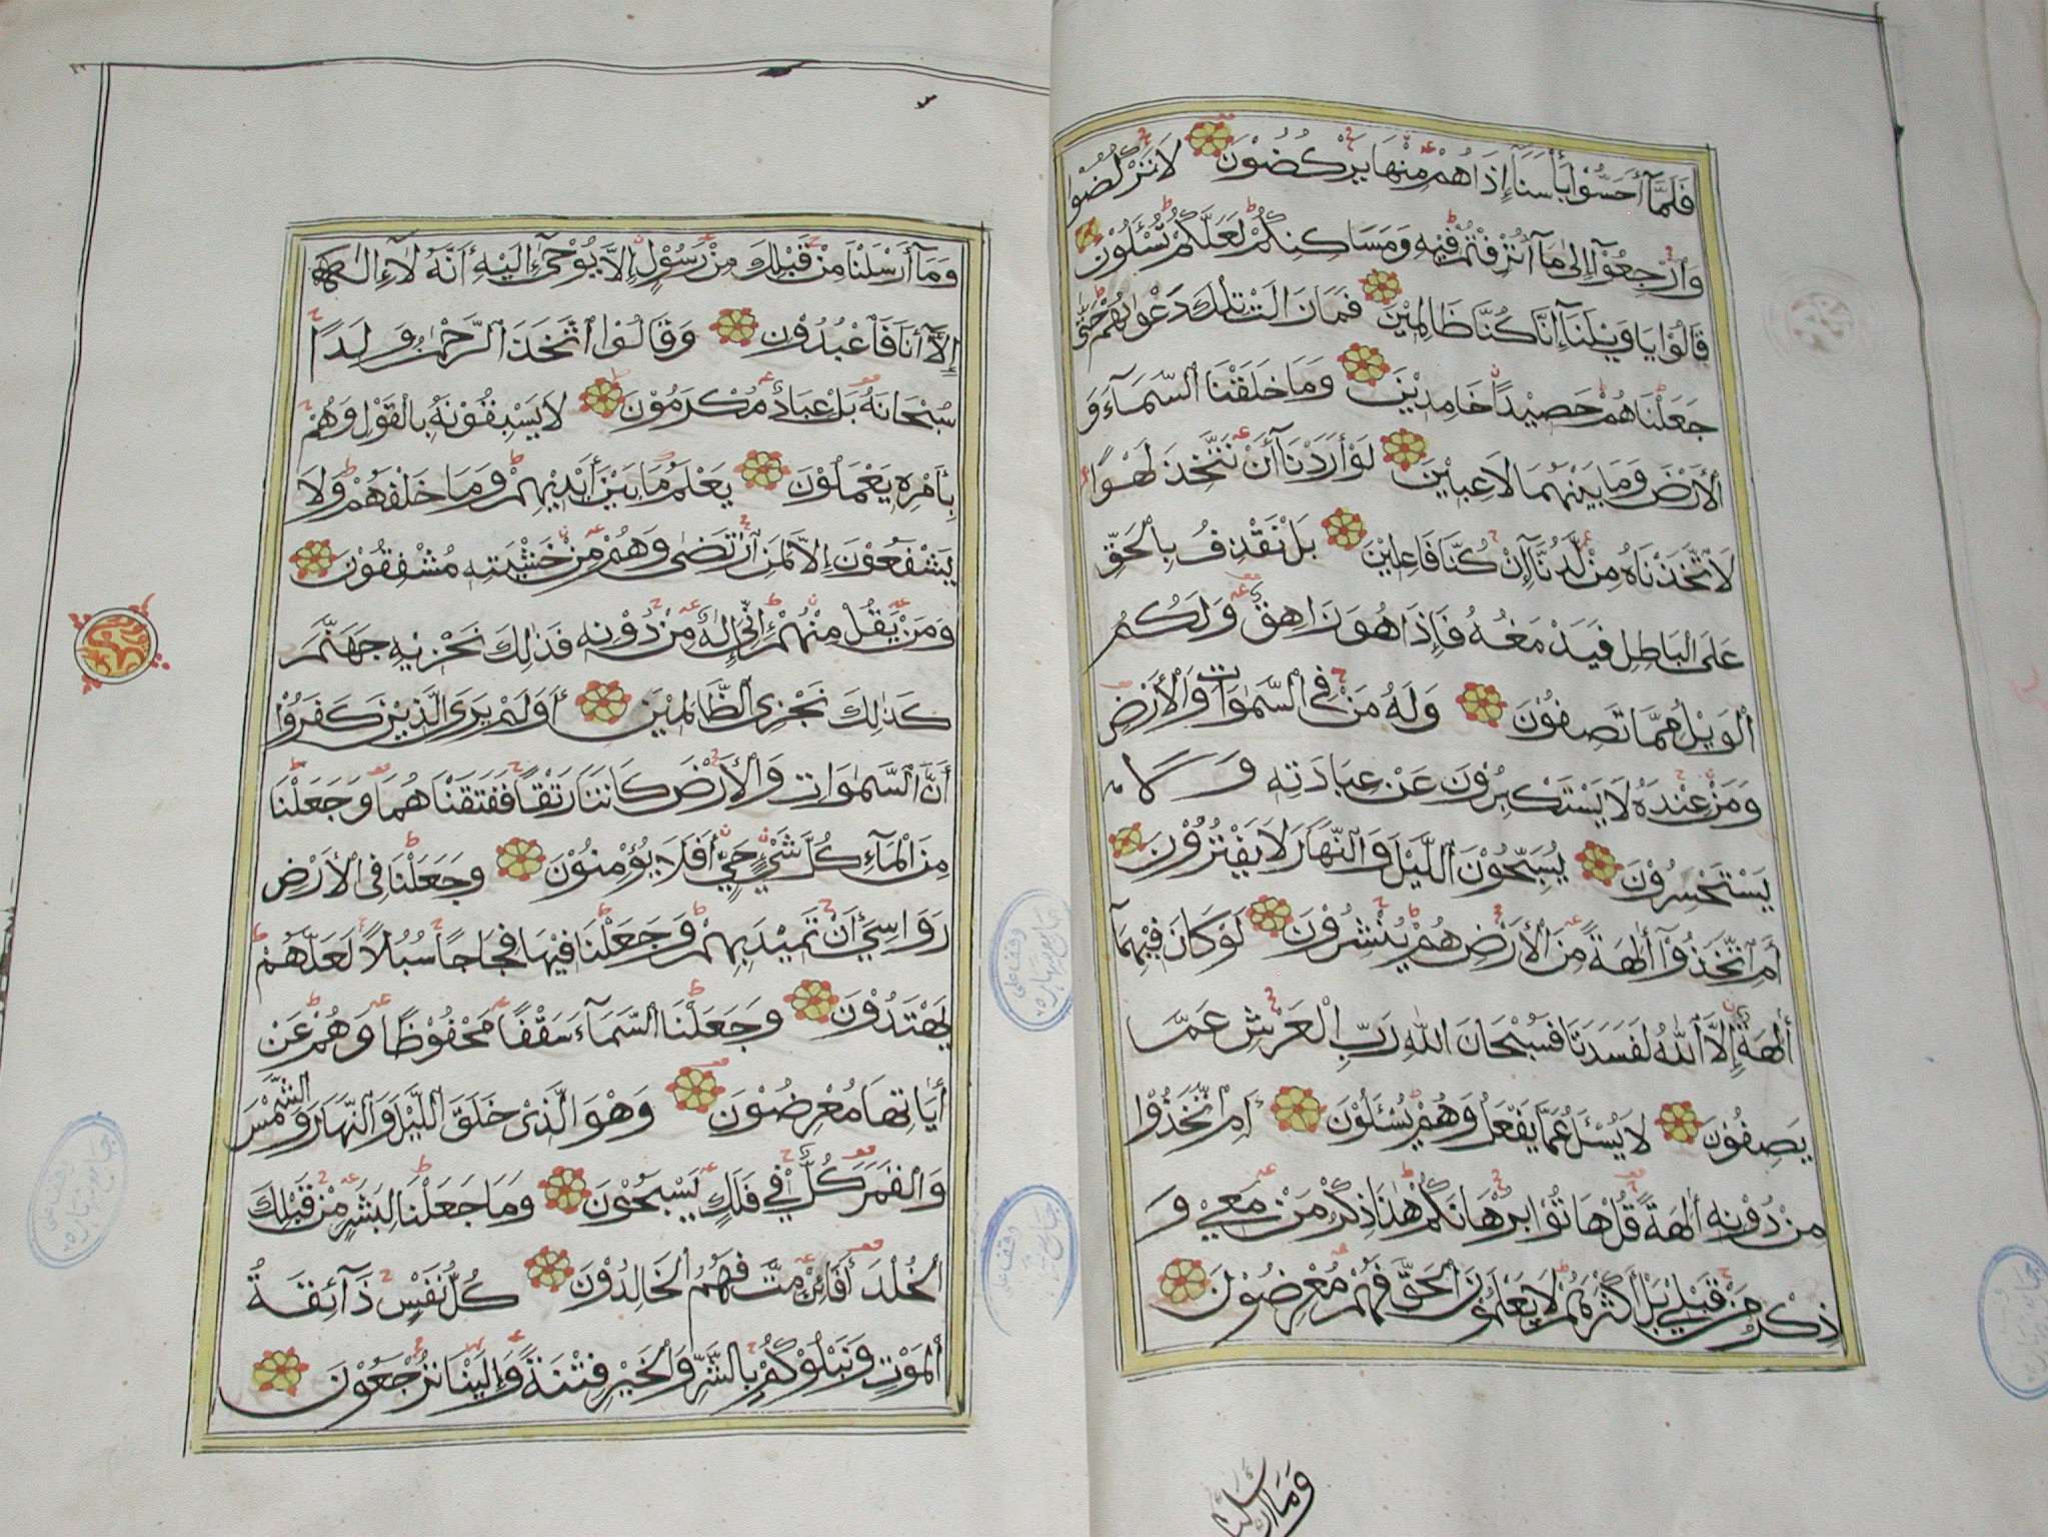 فَلَمَّآ أَحَسُّوْا بَأْسَنَآ إِذَا هُمْ مِنْهَا يَرْكُضُوْنَ لَا تَرْكُضُوْا
وَارْجِعُوْآ إِلىٰ مَآ أُتْرِفْتُمْ فِيْهِ وَمَسَاكِنِكُمْ لَعَلَّكُمْ تُسْئَلُوْنَ
قَالُوْا يَا وَيْلَنَآ إِنَّا كُنَّا ظَالِمِيْنَ فَمَا زَالَتْ تِلْكَ دَعْوٰىهُمْ حَتّٰى
جَعَلْنَاهُمْ حَصِيْدًا خَامِدِيْنَ وَمَا خَلَقْنَا السَّمَآءَ وَ
الْأَرْضَ وَمَا بَيْنَهُمَا لَاعِبِيْنَ لَوْ أَرَدْنَآ أَنْ نَتَّخِذَ لَهْوًا
لَاتَّخَذْنَاهُ مِنْ لَّدُنَّآ إِنْ كُنَّا فَاعِلِيْنَ بَلْ نَقْذِفُ بِالْحَقِّ
عَلَى الْبَاطِلِ فَيَدْمَغُهُ فَإِذَا هُوَ زَاهِقٌ وَلَكُمُ
الْوَيْلُ مِمَّا تَصِفُوْنَ وَلَهُ مَنْ فِى السَّمٰوَاتِ وَالْأَرْضِ
وَمَنْ عِنْدَهُ لَا يَسْتَكْبِرُوْنَ عَنْ عِبَادَتِهِ وَلَا
يَسْتَحْسِرُوْنَ يُسَبِّحُوْنَ اللَّيْلَ وَالنَّهَارَ لَا يَفْتُرُوْنَ
أَمِ اتَّخَذُوْآ اٰلِهَةً مِنَ الْأَرْضِ هُمْ يُنْشِرُوْنَ لَوْ كَانَ فِيْهِمَآ
اٰلِهَةٌ إِلَّا اللّٰهُ لَفَسَدَتَا فَسُبْحَانَ اللّٰهِ رَبِّ الْعَرْشِ عَمَّا
يَصِفُوْنَ لَا يُسْئَلُ عَمَّا يَفْعَلُ وَهُمْ يُسْئَلُوْنَ أَمِ اتَّخَذُوْا
مِنْ دُوْنِهِ اٰلِهَةً قُلْ هَاتُوْا بُرْهَانَكُمْ هٰذَا ذِكْرُ مَنْ مَعِيَ وَ
ذِكْرُ مَنْ قَبْلِي بَلْ أَكْثَرُهُمْ لَا يَعْلَمُوْنَ الْحَقَّ فَهُمْ مُعْرِضُوْنَ
وَمَا أَرْسَلْنَا
وَمَآ أَرْسَلْنَا مِنْ قَبْلِكَ مِنْ رَسُوْلٍ إِلَّا يُوْحىٰٓ إِلَيْهِ أَنَّهُ لَآ إِلٰهَ
إِلَّآ أَنَا فَاعْبُدُوْنِ وَقَالُوْا اتَّخَذَ الرَّحْمٰنُ وَلَدًا
سُبْحَانَهُ بَلْ عِبَادٌ مُكْرَمُوْنَ لَا يَسْبِقُوْنَهُ بِالْقَوْلِ وَهُمْ
بِأَمْرِهِ يَعْمَلُوْنَ يَعْلَمُ مَا بَيْنَ أَيْدِيْهِمْ وَمَا خَلْفَهُمْ وَلَا
يَشْفَعُوْنَ إِلَّا لِمَنِ ارْتَضٰى وَهُمْ مِنْ خَشْيَتِهِ مُشْفِقُوْنَ
وَمَنْ يَقُلْ مِنْهُمْ إِنِّىٓ إِلٰهٌ مِنْ دُوْنِهِ فَذٰلِكَ نَجْزِيْهِ جَهَنَّمَ
كَذٰلِكَ نَجْزِى الظَّالِمِيْنَ أَوَلَمْ يَرَى الَّذِيْنَ كَفَرُوْا
أَنَّ السَّمٰوَاتِ وَالْأَرْضَ كَانَتَا رَتْقًا فَفَتَقْنَاهُمَا وَجَعَلْنَا
مِنَ الْمَآءِ كُلَّ شَيْءٍ حَيٍّ أَفَلَا يُؤْمِنُوْنَ وَجَعَلْنَا فِى الْأَرْضِ
رَوَاسِيَ أَنْ تَمِيْدَ بِهِمْ وَجَعَلْنَا فِيْهَا فِجَاجًا سُبُلًا لَعَلَّهُمْ
يَهْتَدُوْنَ وَجَعَلْنَا السَّمَآءَ سَقْفًا مَحْفُوْظًا وَهُمْ عَنْ
اٰيَاتِهَا مُعْرِضُوْنَ وَهُوَ الَّذِىْ خَلَقَ اللَّيْلَ وَالنَّهَارَ وَالشَّمْسَ
وَالْقَمَرَ كُلٌّ فِي فَلَكٍ يَسْبَحُوْنَ وَمَا جَعَلْنَا لِبَشَرٍ مِنْ قَبْلِكَ
الْخُلْدَ أَفَائِنْ مِتَّ فَهُمُ الْخَالِدُوْنَ كُلُّ نَفْسٍ ذَآئِقَةُ
الْمَوْتِ وَنَبْلُوْكُمْ بِالشَّرِّ وَالْخَيْرِ فِتْنَةً وَإِلَيْنَا تُرْجَعُوْنَ